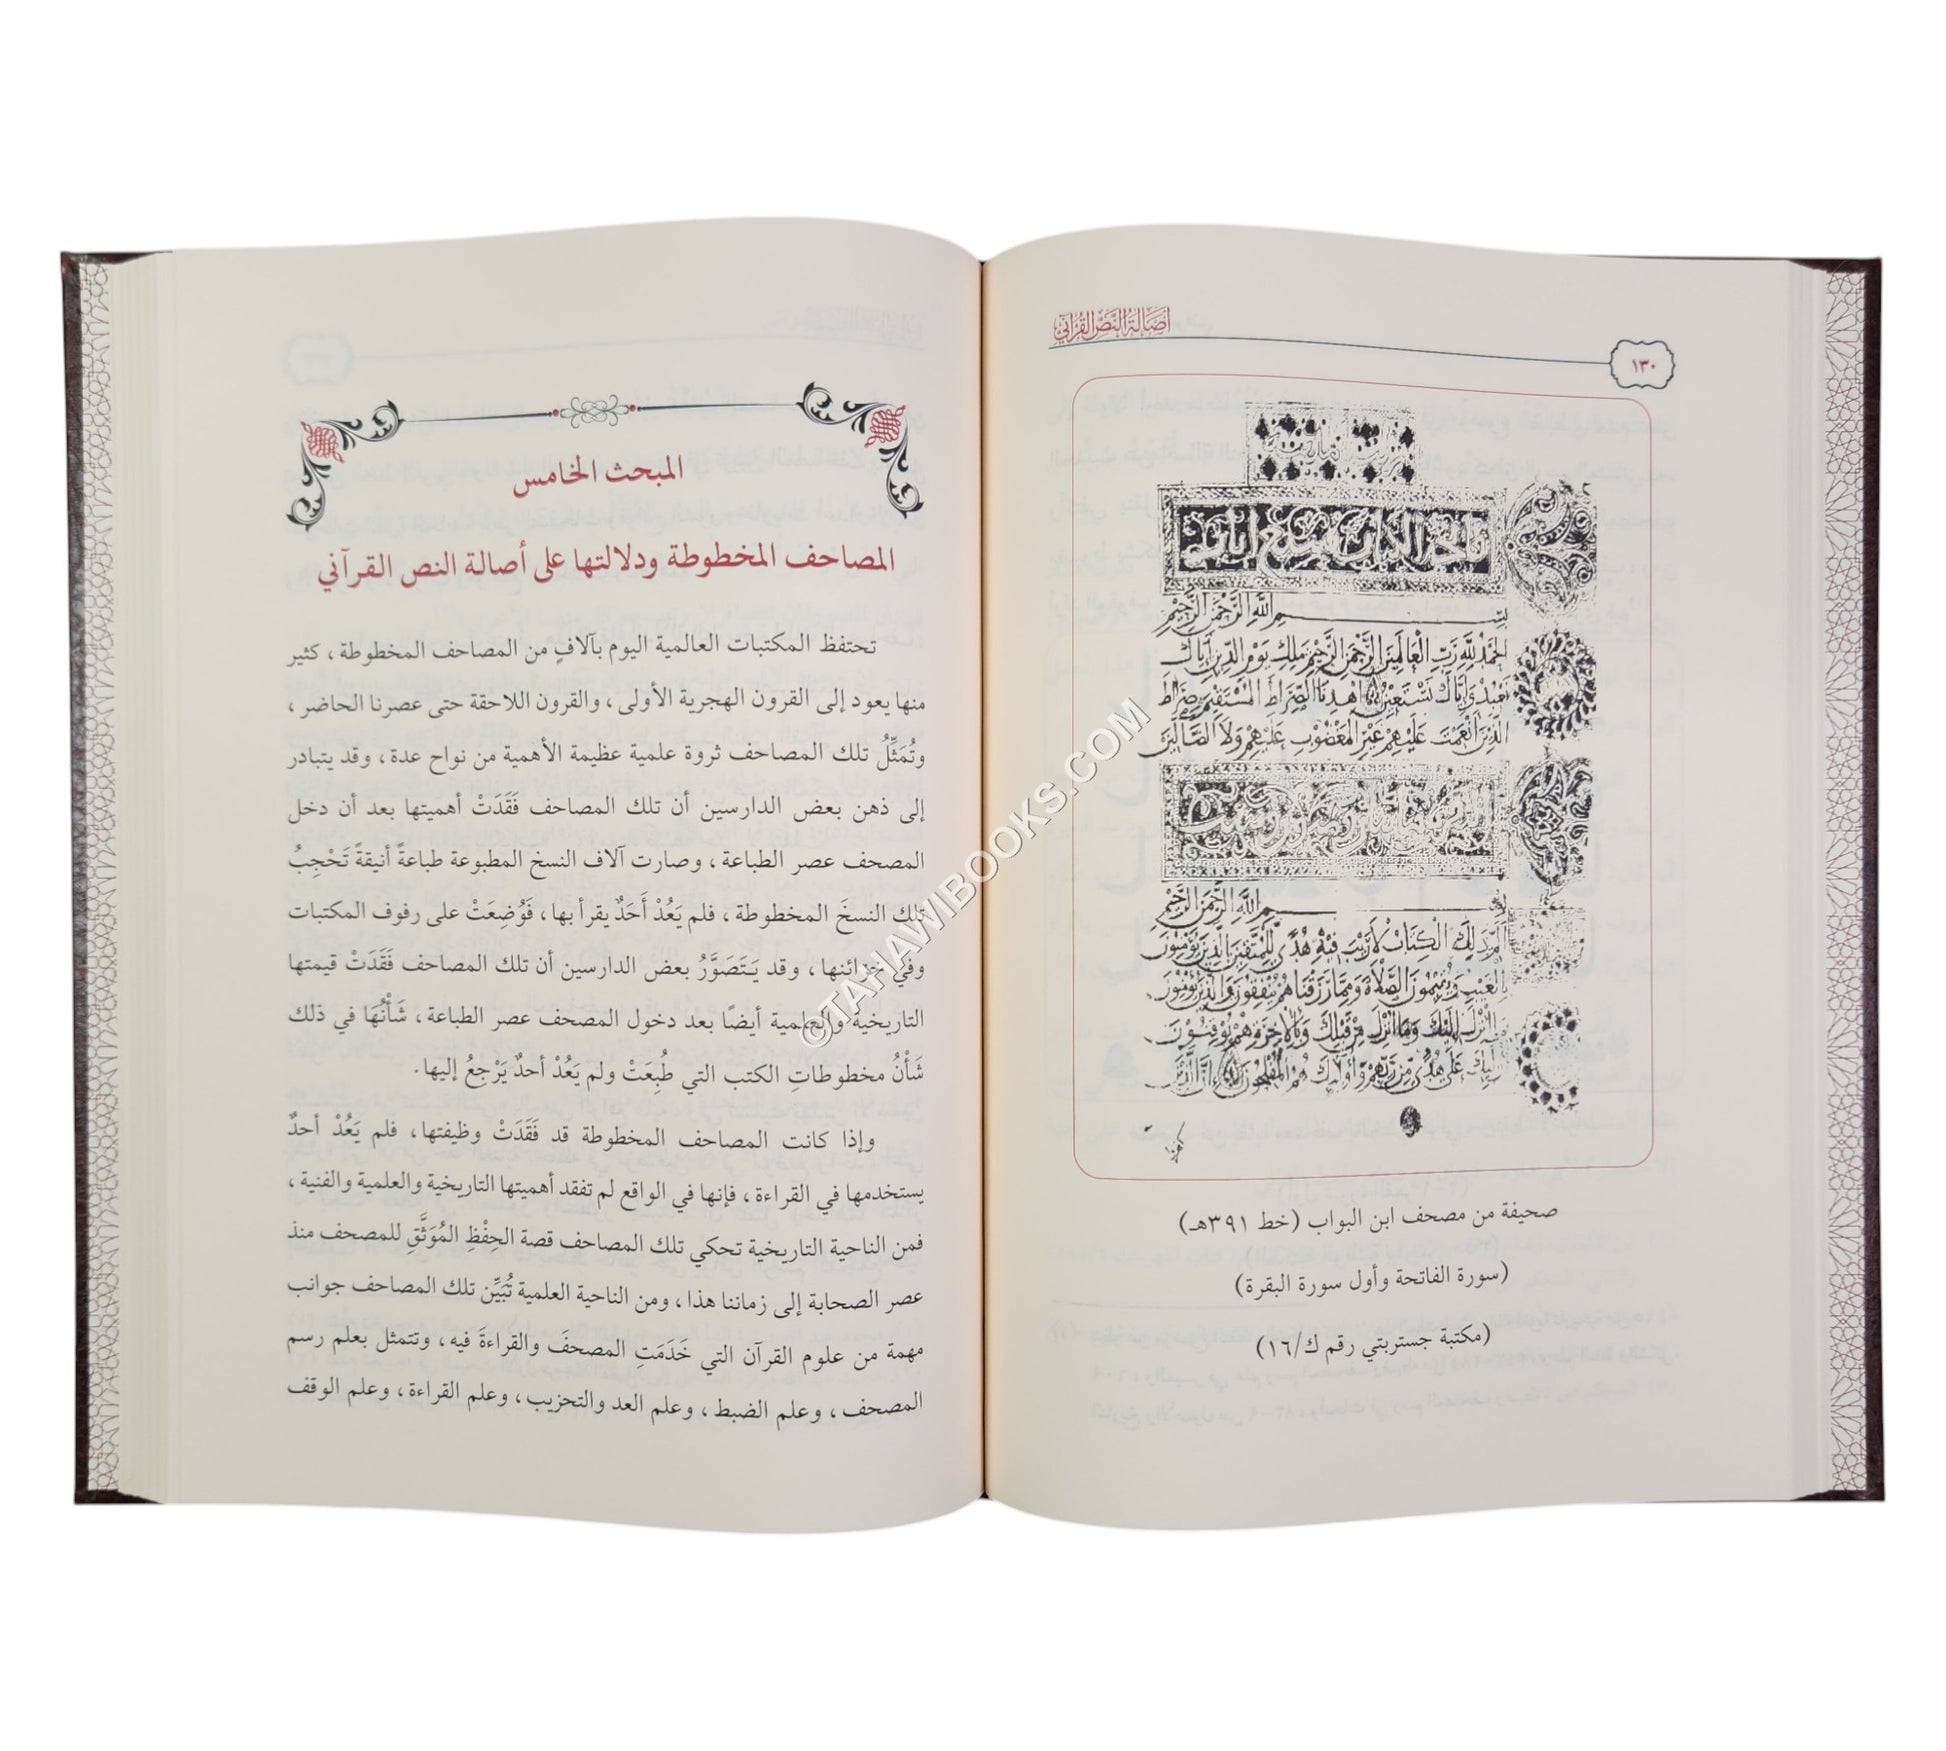 أصالة النص القرآني
١٣٠
بسم الله الرحمن الرحيم
الحمد لله رب العالمين الرحمن الرحيم ملك يوم الدين اياك
نعبد واياك نستعين اهدنا الصراط المستقيم صراط
الذين انعمت عليهم غير المغضوب عليهم ولا الضالين
بسم الله الرحمن الرحيم
الم ذلك الكتاب لا ريب فيه هدى للمتقين الذين يؤمنون
بالغيب ويقيمون الصلاة ومما رزقناهم ينفقون والذين يؤمنون
بما انزل اليك وما انزل من قبلك وبالاخرة هم يوقنون
اوليك على هدى من ربهم واوليك هم المفلحون ان الذين
صحيفة من مصحف ابن البواب (خط ٣٩١هـ)
(سورة الفاتحة وأول سورة البقرة)
(مكتبة جستربتي رقم ك/١٦)
المبحث الخامس
المصاحف المخطوطة ودلالتها على أصالة النص القرآني
تحتفظ المكتبات العالمية اليوم بآلافٍ من المصاحف المخطوطة، كثير
منها يعود إلى القرون الهجرية الأولى، والقرون اللاحقة حتى عصرنا الحاضر،
وتُمَثِّلُ تلك المصاحف ثروة علمية عظيمة الأهمية من نواح عدة، وقد يتبادر
إلى ذهن بعض الدارسين أن تلك المصاحف فَقَدَتْ أهميتها بعد أن دخل
المصحف عصر الطباعة، وصارت آلاف النسخ المطبوعة طباعةً أنيقةً تَحْجِبُ
تلك النسخَ المخطوطة، فلم يَعُدْ أَحَدٌ يقرأ بها، فَوُضِعَتْ على رفوف المكتبات
وفي خزائنها، وقد يَتَصَوَّرُ بعض الدارسين أن تلك المصاحف فَقَدَتْ قيمتها
التاريخية والعلمية أيضًا بعد دخول المصحف عصر الطباعة، شَأْنُهَا في ذلك
شَأْنُ مخطوطاتِ الكتب التي طُبِعَتْ ولم يَعُدْ أحدٌ يَرْجِعُ إليها.
وإذا كانت المصاحف المخطوطة قد فَقَدَتْ وظيفتها، فلم يَعُدْ أحدٌ
يستخدمها في القراءة، فإنها في الواقع لم تفقد أهميتها التاريخية والعلمية والفنية،
فمن الناحية التاريخية تحكي تلك المصاحف قصة الحِفْظِ المُوَثَّقِ للمصحف منذ
عصر الصحابة إلى زماننا هذا، ومن الناحية العلمية تُبَيِّن تلك المصاحف جوانب
مهمة من علوم القرآن التي خَدَمَتِ المصحفَ والقراءةَ فيه، وتتمثل بعلم رسم
المصحف، وعلم الضبط، وعلم العد والتحزيب، وعلم القراءة، وعلم الوقف
©TAHAWIBOOKS.COM